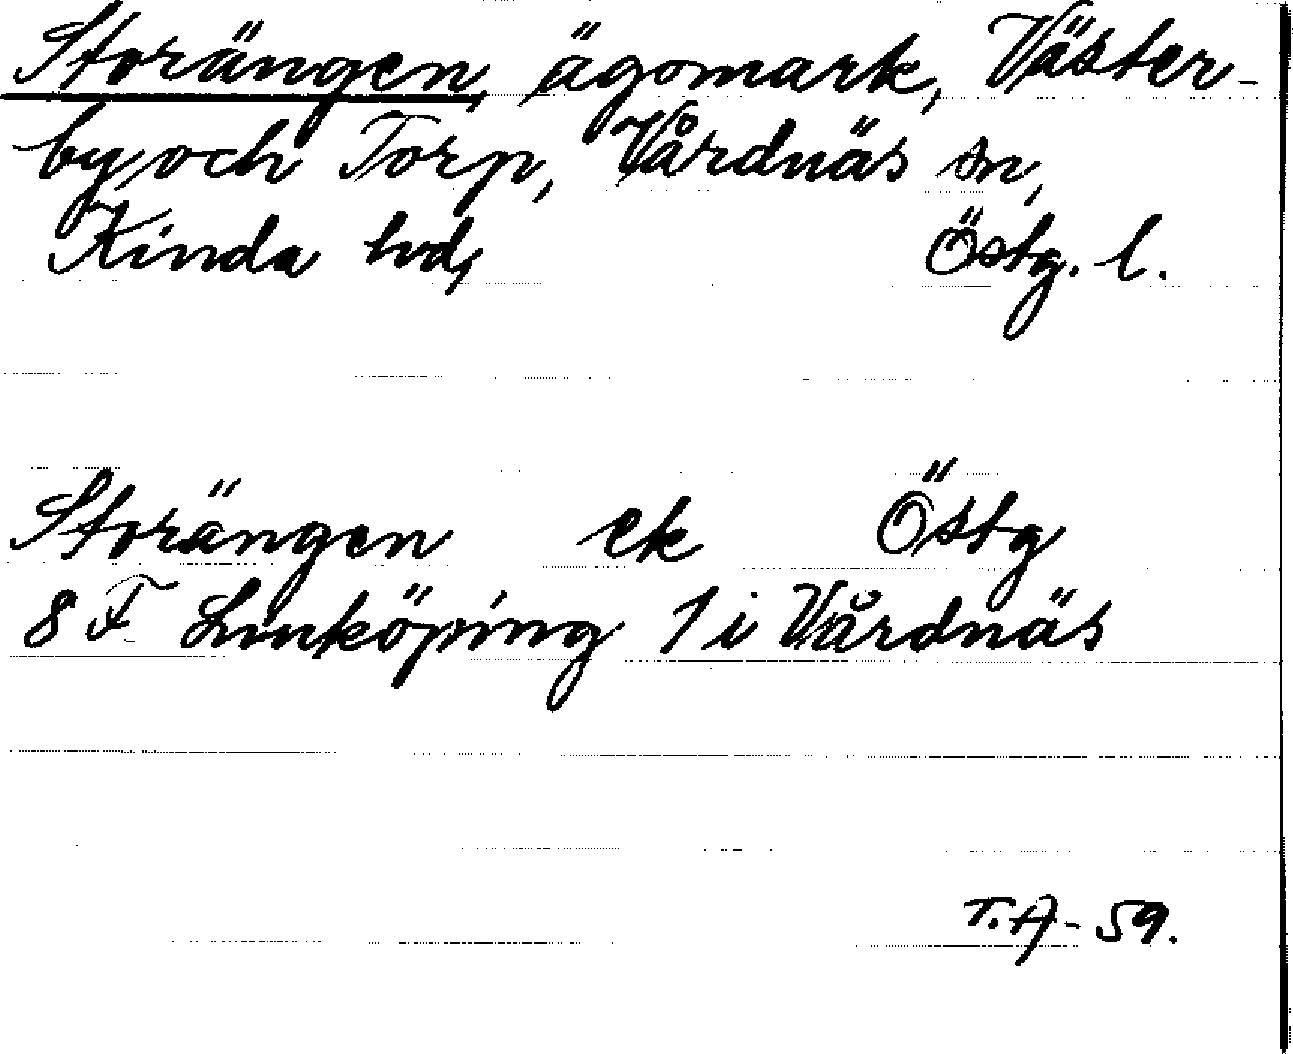 Storängen, ägomark, Väster-
by och Torp, Vårdnäs sn,
Kinda hd, Östg. l.
Storängen ek Östg
8 F Linköping 1 i Vårdnäs
T.A-59.